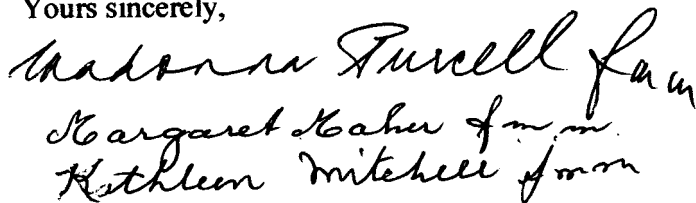 Yours sincerely,
Madonna Purcell fmm
Margaret Maher fmm
Kathleen Mitchell fmm